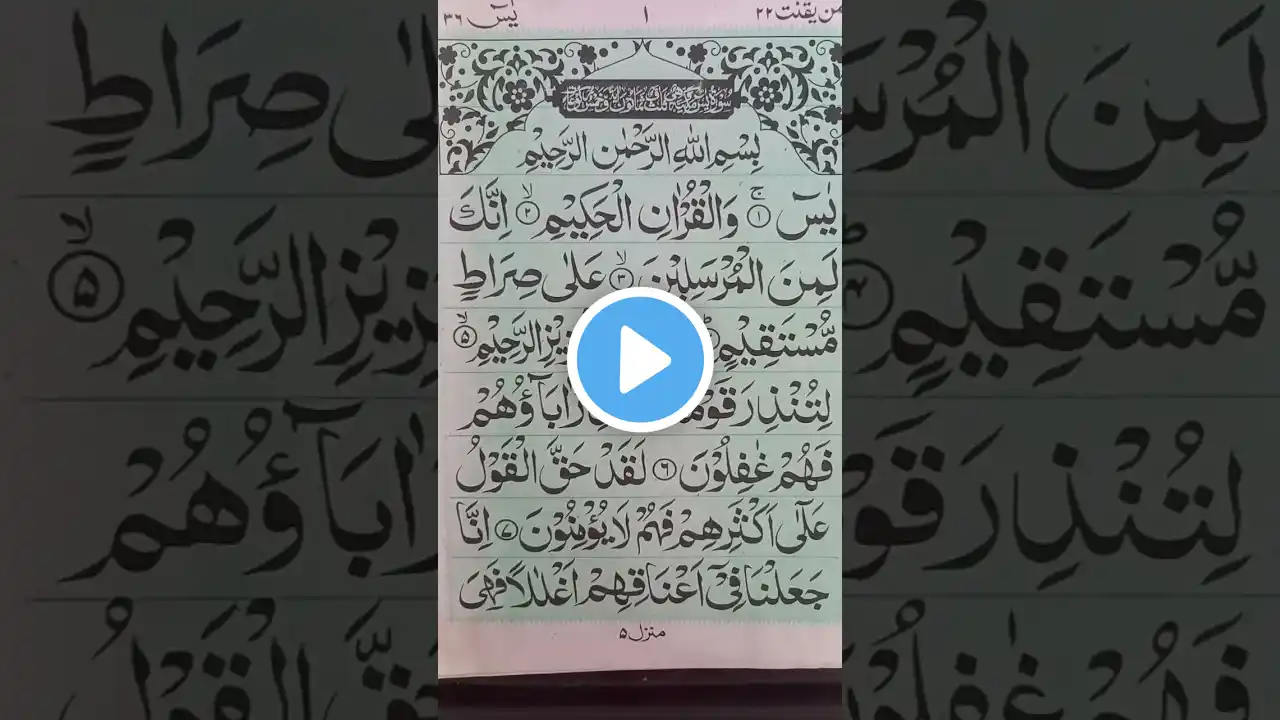 من یقنت ۲۲ ۱ یٰسٓ ۳۶
بِسْمِ اللّٰهِ الرَّحْمٰنِ الرَّحِیْمِ
یٰسٓ ۚ﴿۱﴾ وَالْقُرْاٰنِ الْحَكِیْمِ ۙ﴿۲﴾ اِنَّكَ
لَمِنَ الْمُرْسَلِیْنَ ۙ﴿۳﴾ عَلٰی صِرَاطٍ
مُّسْتَقِیْمٍ الرَّحِیْمِ ۙ﴿۵﴾
لِتُنْذِرَ اٰبَآؤُهُمْ
فَهُمْ غٰفِلُوْنَ ﴿۶﴾ لَقَدْ حَقَّ الْقَوْلُ
عَلٰۤی اَكْثَرِهِمْ فَهُمْ لَا یُؤْمِنُوْنَ ﴿۷﴾ اِنَّا
جَعَلْنَا فِیْۤ اَعْنَاقِهِمْ اَغْلٰلًا فَهِیَ
منزل ۵